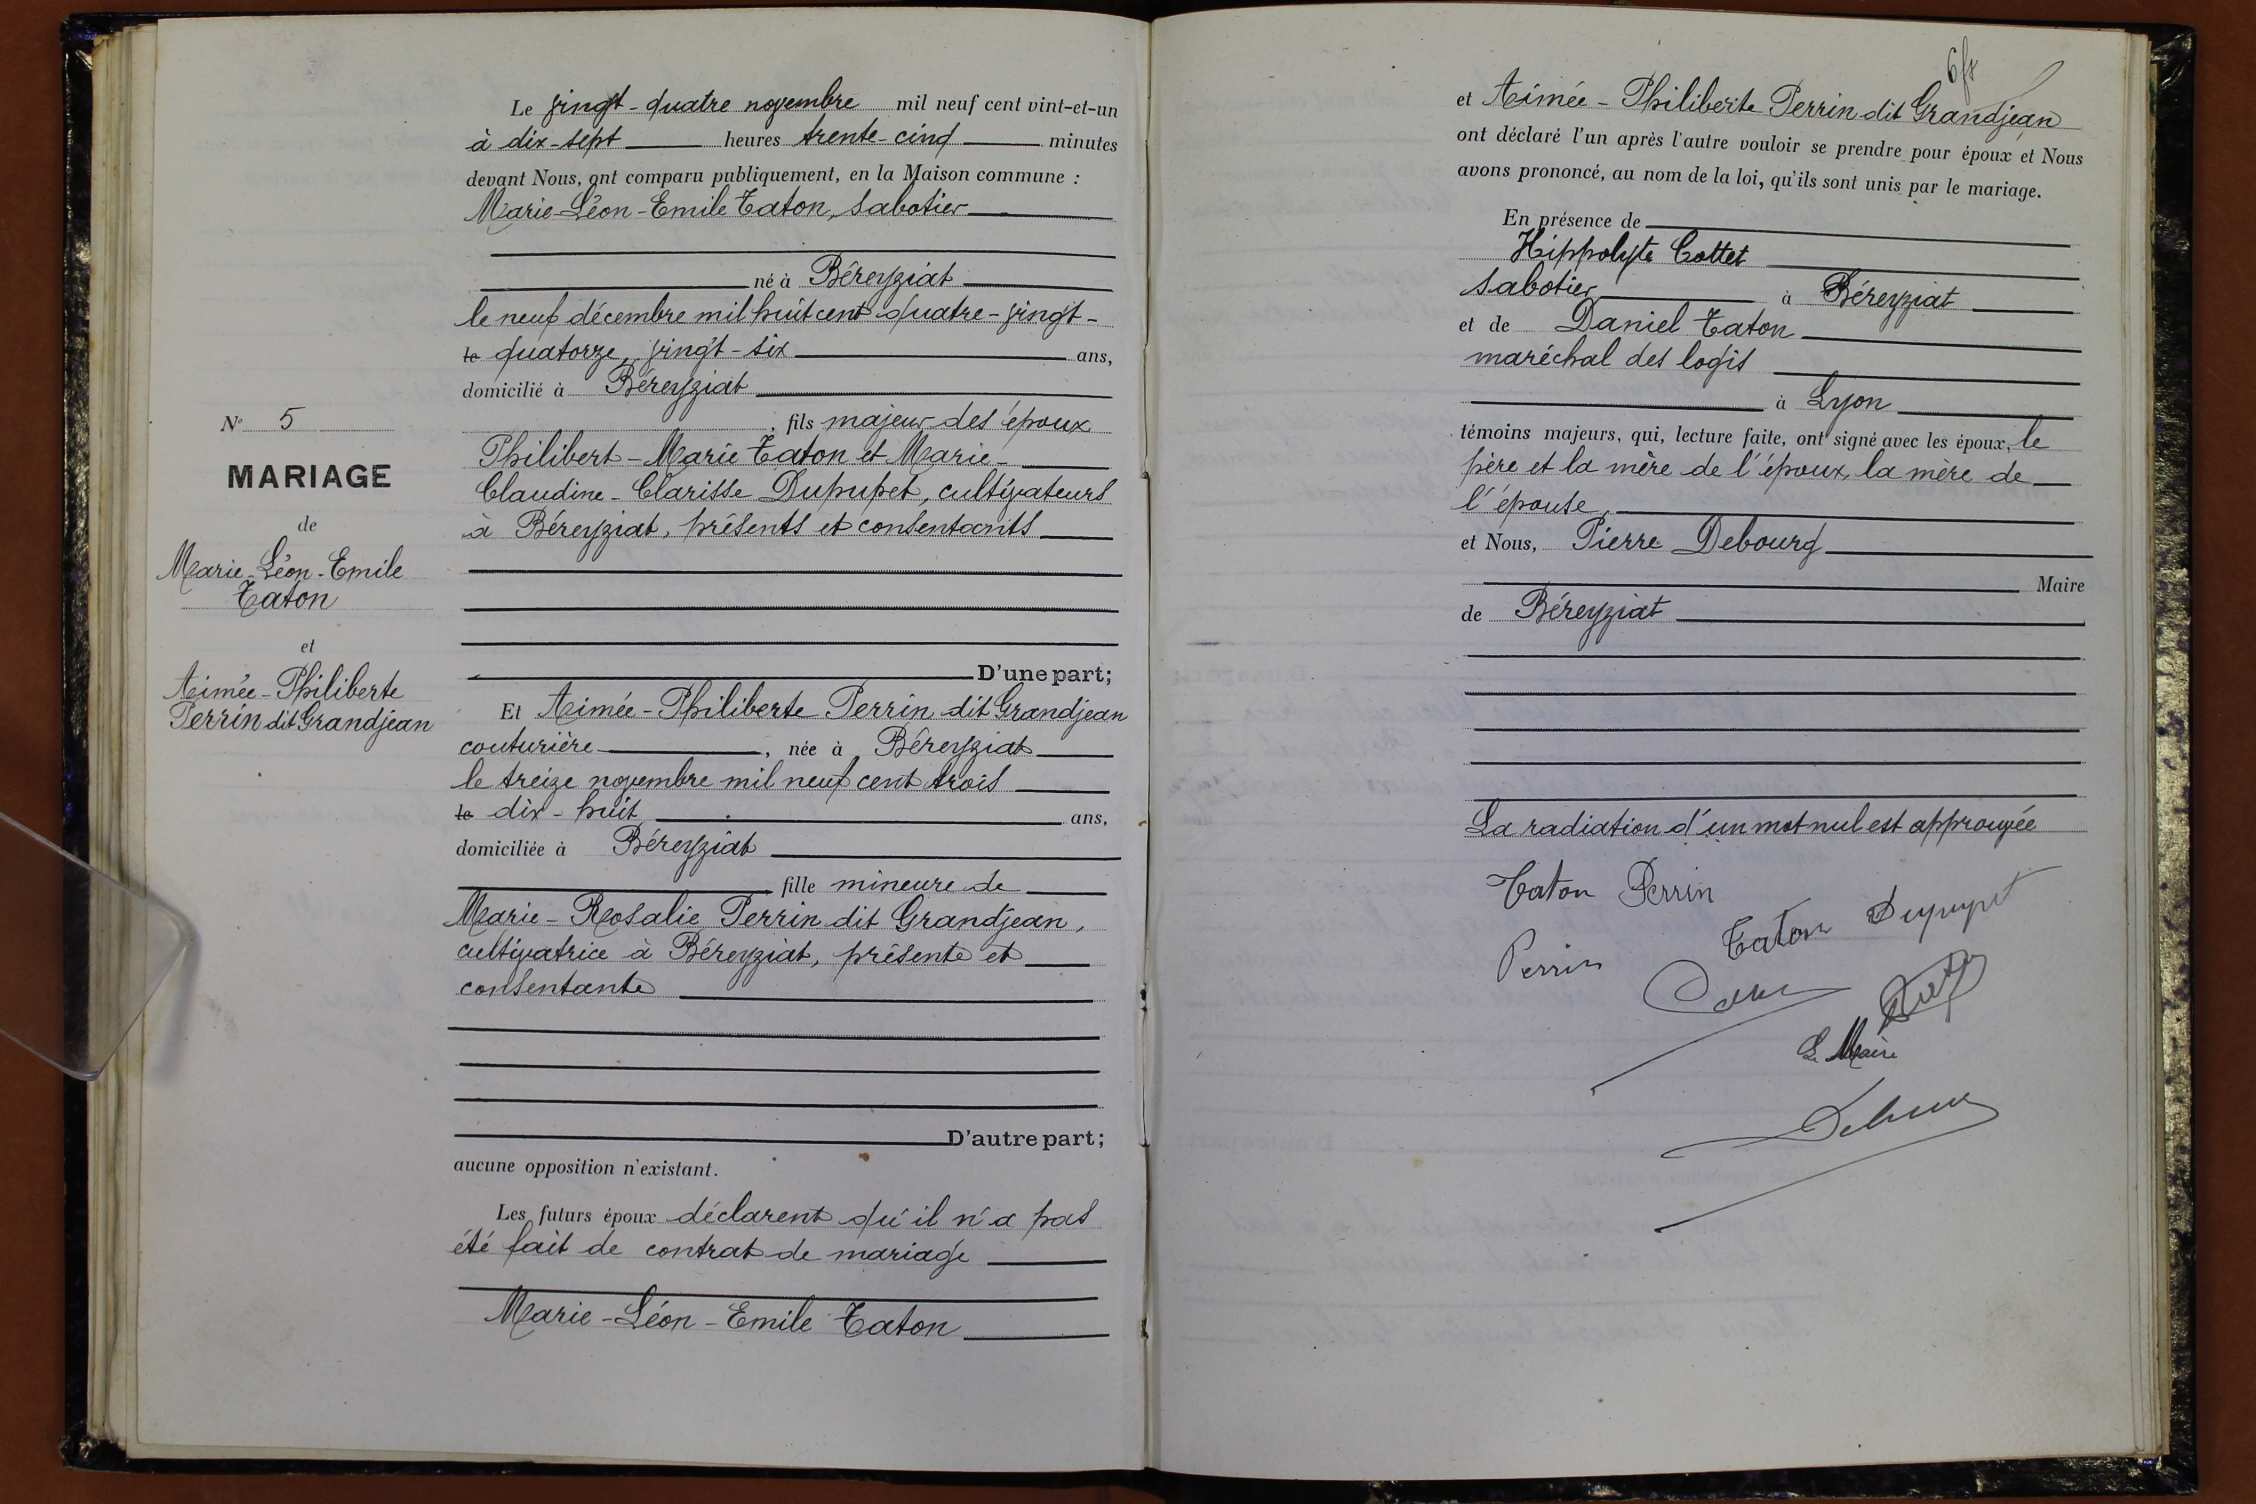 N° 5
MARIAGE
de
Marie-Léon-Emile
Taton
et
Aimée-Philiberte
Perrin dit Grandjean
Le vingt-quatre novembre mil neuf cent vint-et-un
à dix-sept heures trente-cinq minutes
devant Nous, ont comparu publiquement, en la Maison commune :
Marie-Léon-Emile Taton, sabotier
né à Béreyziat
le neuf décembre mil huit cent quatre-vingt-
le quatorze, vingt-six ans,
domicilié à Béreyziat
, fils majeur des époux
Philibert-Marie Taton et Marie-
Claudine-Clarisse Dupupet, cultivateurs
à Béreyziat, présents et consentants
D'une part;
Et Aimée-Philiberte Perrin dit Grandjean
couturière, née à Béreyziat
le treize novembre mil neuf cent trois
le dix-huit ans,
domiciliée à Béreyziat
fille mineure de
Marie-Rosalie Perrin dit Grandjean,
cultivatrice à Béreyziat, présente et
consentante
D'autre part;
aucune opposition n'existant.
Les futurs époux déclarent qu'il n'a pas
été fait de contrat de mariage
Marie-Léon-Emile Taton
et Aimée-Philiberte Perrin dit Grandjean
ont déclaré l'un après l'autre vouloir se prendre pour époux et Nous
avons prononcé, au nom de la loi, qu'ils sont unis par le mariage.
En présence de
Hippolyte Cottet
sabotier à Béreyziat
et de Daniel Taton
maréchal des logis
à Lyon
témoins majeurs, qui, lecture faite, ont signé avec les époux, le
père et la mère de l'époux, la mère de
l'épouse,
et Nous, Pierre Debourg
Maire
de Béreyziat
La radiation d'un mot nul est approuvée
Taton Perrin
Taton Dupupet
Perrin
Le Maire